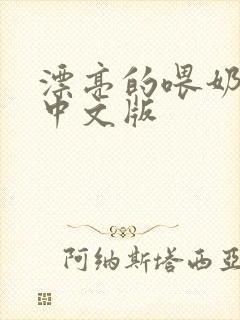 漂亮的喂奶
中文版
阿纳斯塔西亚